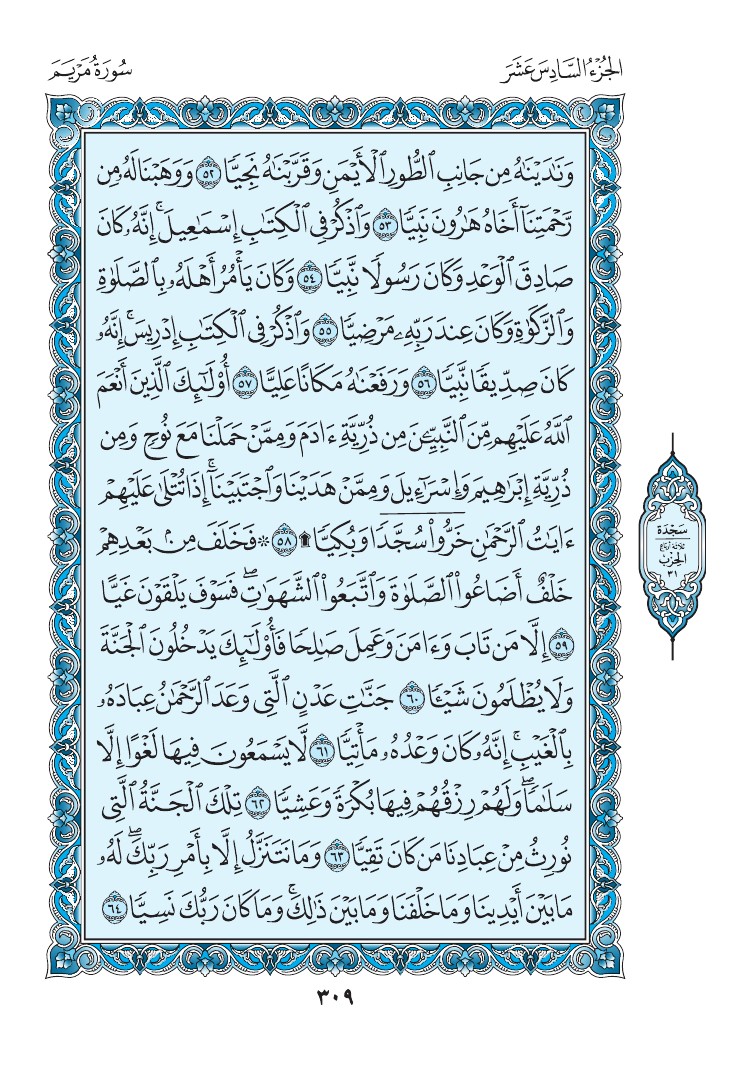 الجزء السادس عشر
سورة مريم
وَنَٰدَيْنَٰهُ مِن جَانِبِ ٱلطُّورِ ٱلْأَيْمَنِ وَقَرَّبْنَٰهُ نَجِيًّا ٥٢ وَوَهَبْنَا لَهُۥ مِن
رَّحْمَتِنَآ أَخَاهُ هَٰرُونَ نَبِيًّا ٥٣ وَٱذْكُرْ فِى ٱلْكِتَٰبِ إِسْمَٰعِيلَ ۚ إِنَّهُۥ كَانَ
صَادِقَ ٱلْوَعْدِ وَكَانَ رَسُولًا نَّبِيًّا ٥٤ وَكَانَ يَأْمُرُ أَهْلَهُۥ بِٱلصَّلَوٰةِ
وَٱلزَّكَوٰةِ وَكَانَ عِندَ رَبِّهِۦ مَرْضِيًّا ٥٥ وَٱذْكُرْ فِى ٱلْكِتَٰبِ إِدْرِيسَ ۚ إِنَّهُۥ
كَانَ صِدِّيقًا نَّبِيًّا ٥٦ وَرَفَعْنَٰهُ مَكَانًا عَلِيًّا ٥٧ أُو۟لَٰٓئِكَ ٱلَّذِينَ أَنْعَمَ
ٱللَّهُ عَلَيْهِم مِّنَ ٱلنَّبِيِّـۧنَ مِن ذُرِّيَّةِ ءَادَمَ وَمِمَّنْ حَمَلْنَا مَعَ نُوحٍ وَمِن
ذُرِّيَّةِ إِبْرَٰهِيمَ وَإِسْرَٰٓءِيلَ وَمِمَّنْ هَدَيْنَا وَٱجْتَبَيْنَآ ۚ إِذَا تُتْلَىٰ عَلَيْهِمْ
ءَايَٰتُ ٱلرَّحْمَٰنِ خَرُّوا۟ سُجَّدًا وَبُكِيًّا ۩ ٥٨ * فَخَلَفَ مِنۢ بَعْدِهِمْ
خَلْفٌ أَضَاعُوا۟ ٱلصَّلَوٰةَ وَٱتَّبَعُوا۟ ٱلشَّهَوَٰتِ ۖ فَسَوْفَ يَلْقَوْنَ غَيًّا
٥٩ إِلَّا مَن تَابَ وَءَامَنَ وَعَمِلَ صَٰلِحًا فَأُو۟لَٰٓئِكَ يَدْخُلُونَ ٱلْجَنَّةَ
وَلَا يُظْلَمُونَ شَيْـًٔا ٦٠ جَنَّٰتِ عَدْنٍ ٱلَّتِى وَعَدَ ٱلرَّحْمَٰنُ عِبَادَهُۥ
بِٱلْغَيْبِ ۚ إِنَّهُۥ كَانَ وَعْدُهُۥ مَأْتِيًّا ٦١ لَّا يَسْمَعُونَ فِيهَا لَغْوًا إِلَّا
سَلَٰمًا ۖ وَلَهُمْ رِزْقُهُمْ فِيهَا بُكْرَةً وَعَشِيًّا ٦٢ تِلْكَ ٱلْجَنَّةُ ٱلَّتِى
نُورِثُ مِنْ عِبَادِنَا مَن كَانَ تَقِيًّا ٦٣ وَمَا نَتَنَزَّلُ إِلَّا بِأَمْرِ رَبِّكَ ۖ لَهُۥ
مَا بَيْنَ أَيْدِينَا وَمَا خَلْفَنَا وَمَا بَيْنَ ذَٰلِكَ ۚ وَمَا كَانَ رَبُّكَ نَسِيًّا ٦٤
سجدة
ثلاثة أرباع
الحزب
٣١
٣٠٩